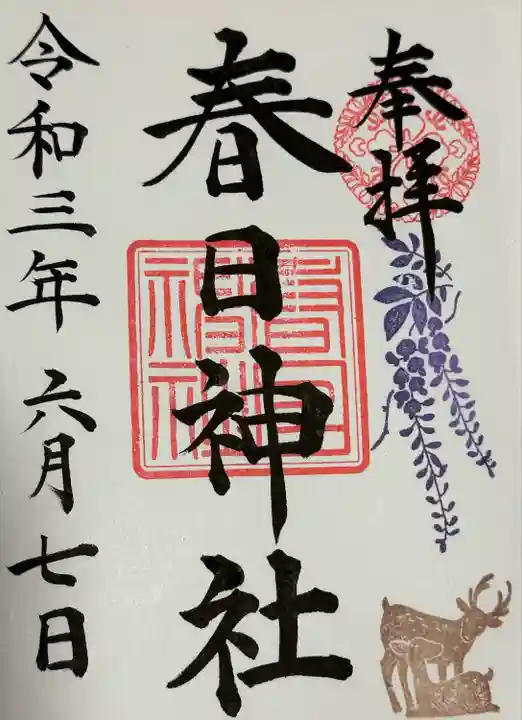 奉拝
春日神社
令和三年 六月七日